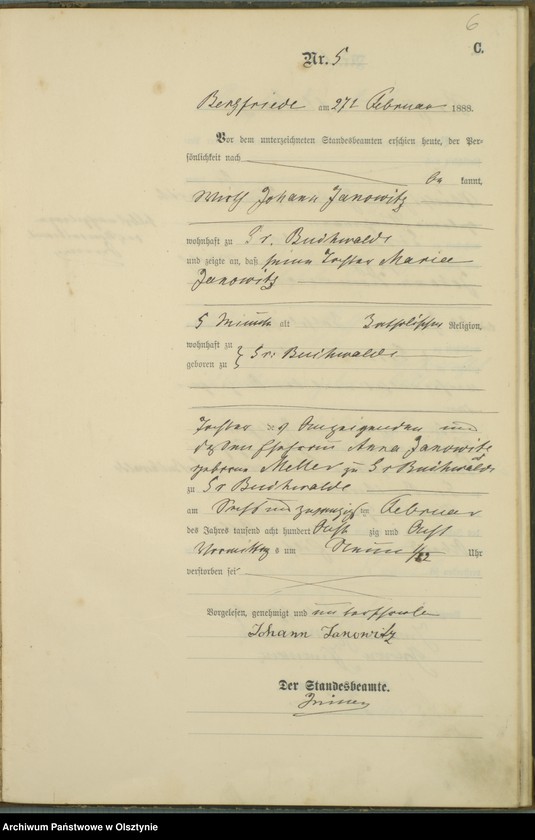 6
C.
Nr. 5
Bergfriede am 27t Februar 1888.
Vor dem unterzeichneten Standesbeamten erschien heute, der Per-
sönlichkeit nach
be kannt,
Wirth Johann Janowitz
wohnhaft zu Gr. Buchwalde
und zeigte an, daß seine Tochter Marie
Janowitz
5 Minute alt katholischer Religion,
wohnhaft zu
geboren zu } Gr. Buchwalde
Tochter des Anzeigenden und
dessen Ehefrau Anna Janowitz
geborene Meller zu Gr Buchwalde
zu Gr Buchwalde
am Sechs und zwanzigsten Februar
des Jahres tausend acht hundert Acht zig und Acht
Vormittags um Neun 1/2 Uhr
verstorben sei
Vorgelesen, genehmigt und unterschrieben
Johann Janowitz
Der Standesbeamte.
Archiwum Państwowe w Olsztynie